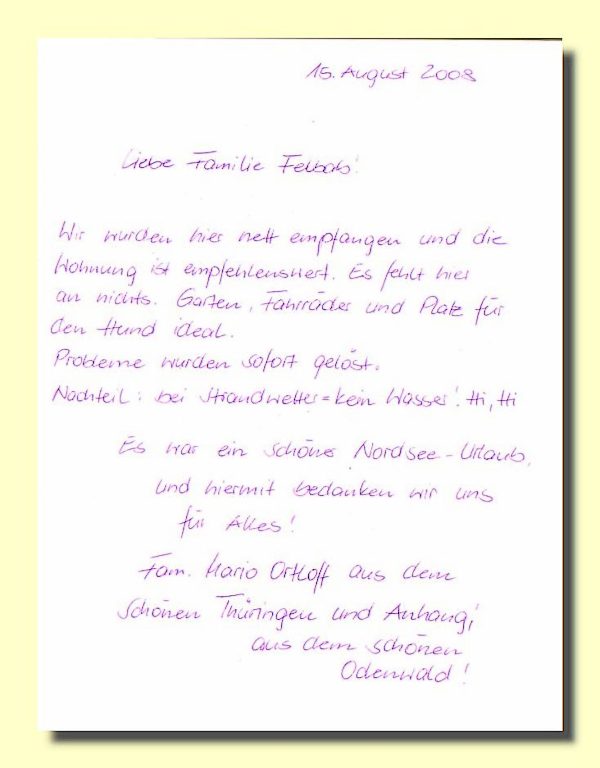 15. August 2008
Liebe Familie
Wir wurden hier nett empfangen und die
Wohnung ist empfehlenswert. Es fehlt hier
an nichts. Garten, Fahrräder und Platz für
den Hund ideal.
Probleme wurden sofort gelöst.
Nachteil: bei Strandwetter = kein Wasser! Hi, Hi
Es war ein schöner Nordsee-Urlaub,
und hiermit bedanken wir uns
für Alles!
Fam. Mario Ortloff aus dem
schönen Thüringen und Anhang,
aus dem schönen
Odenwald!